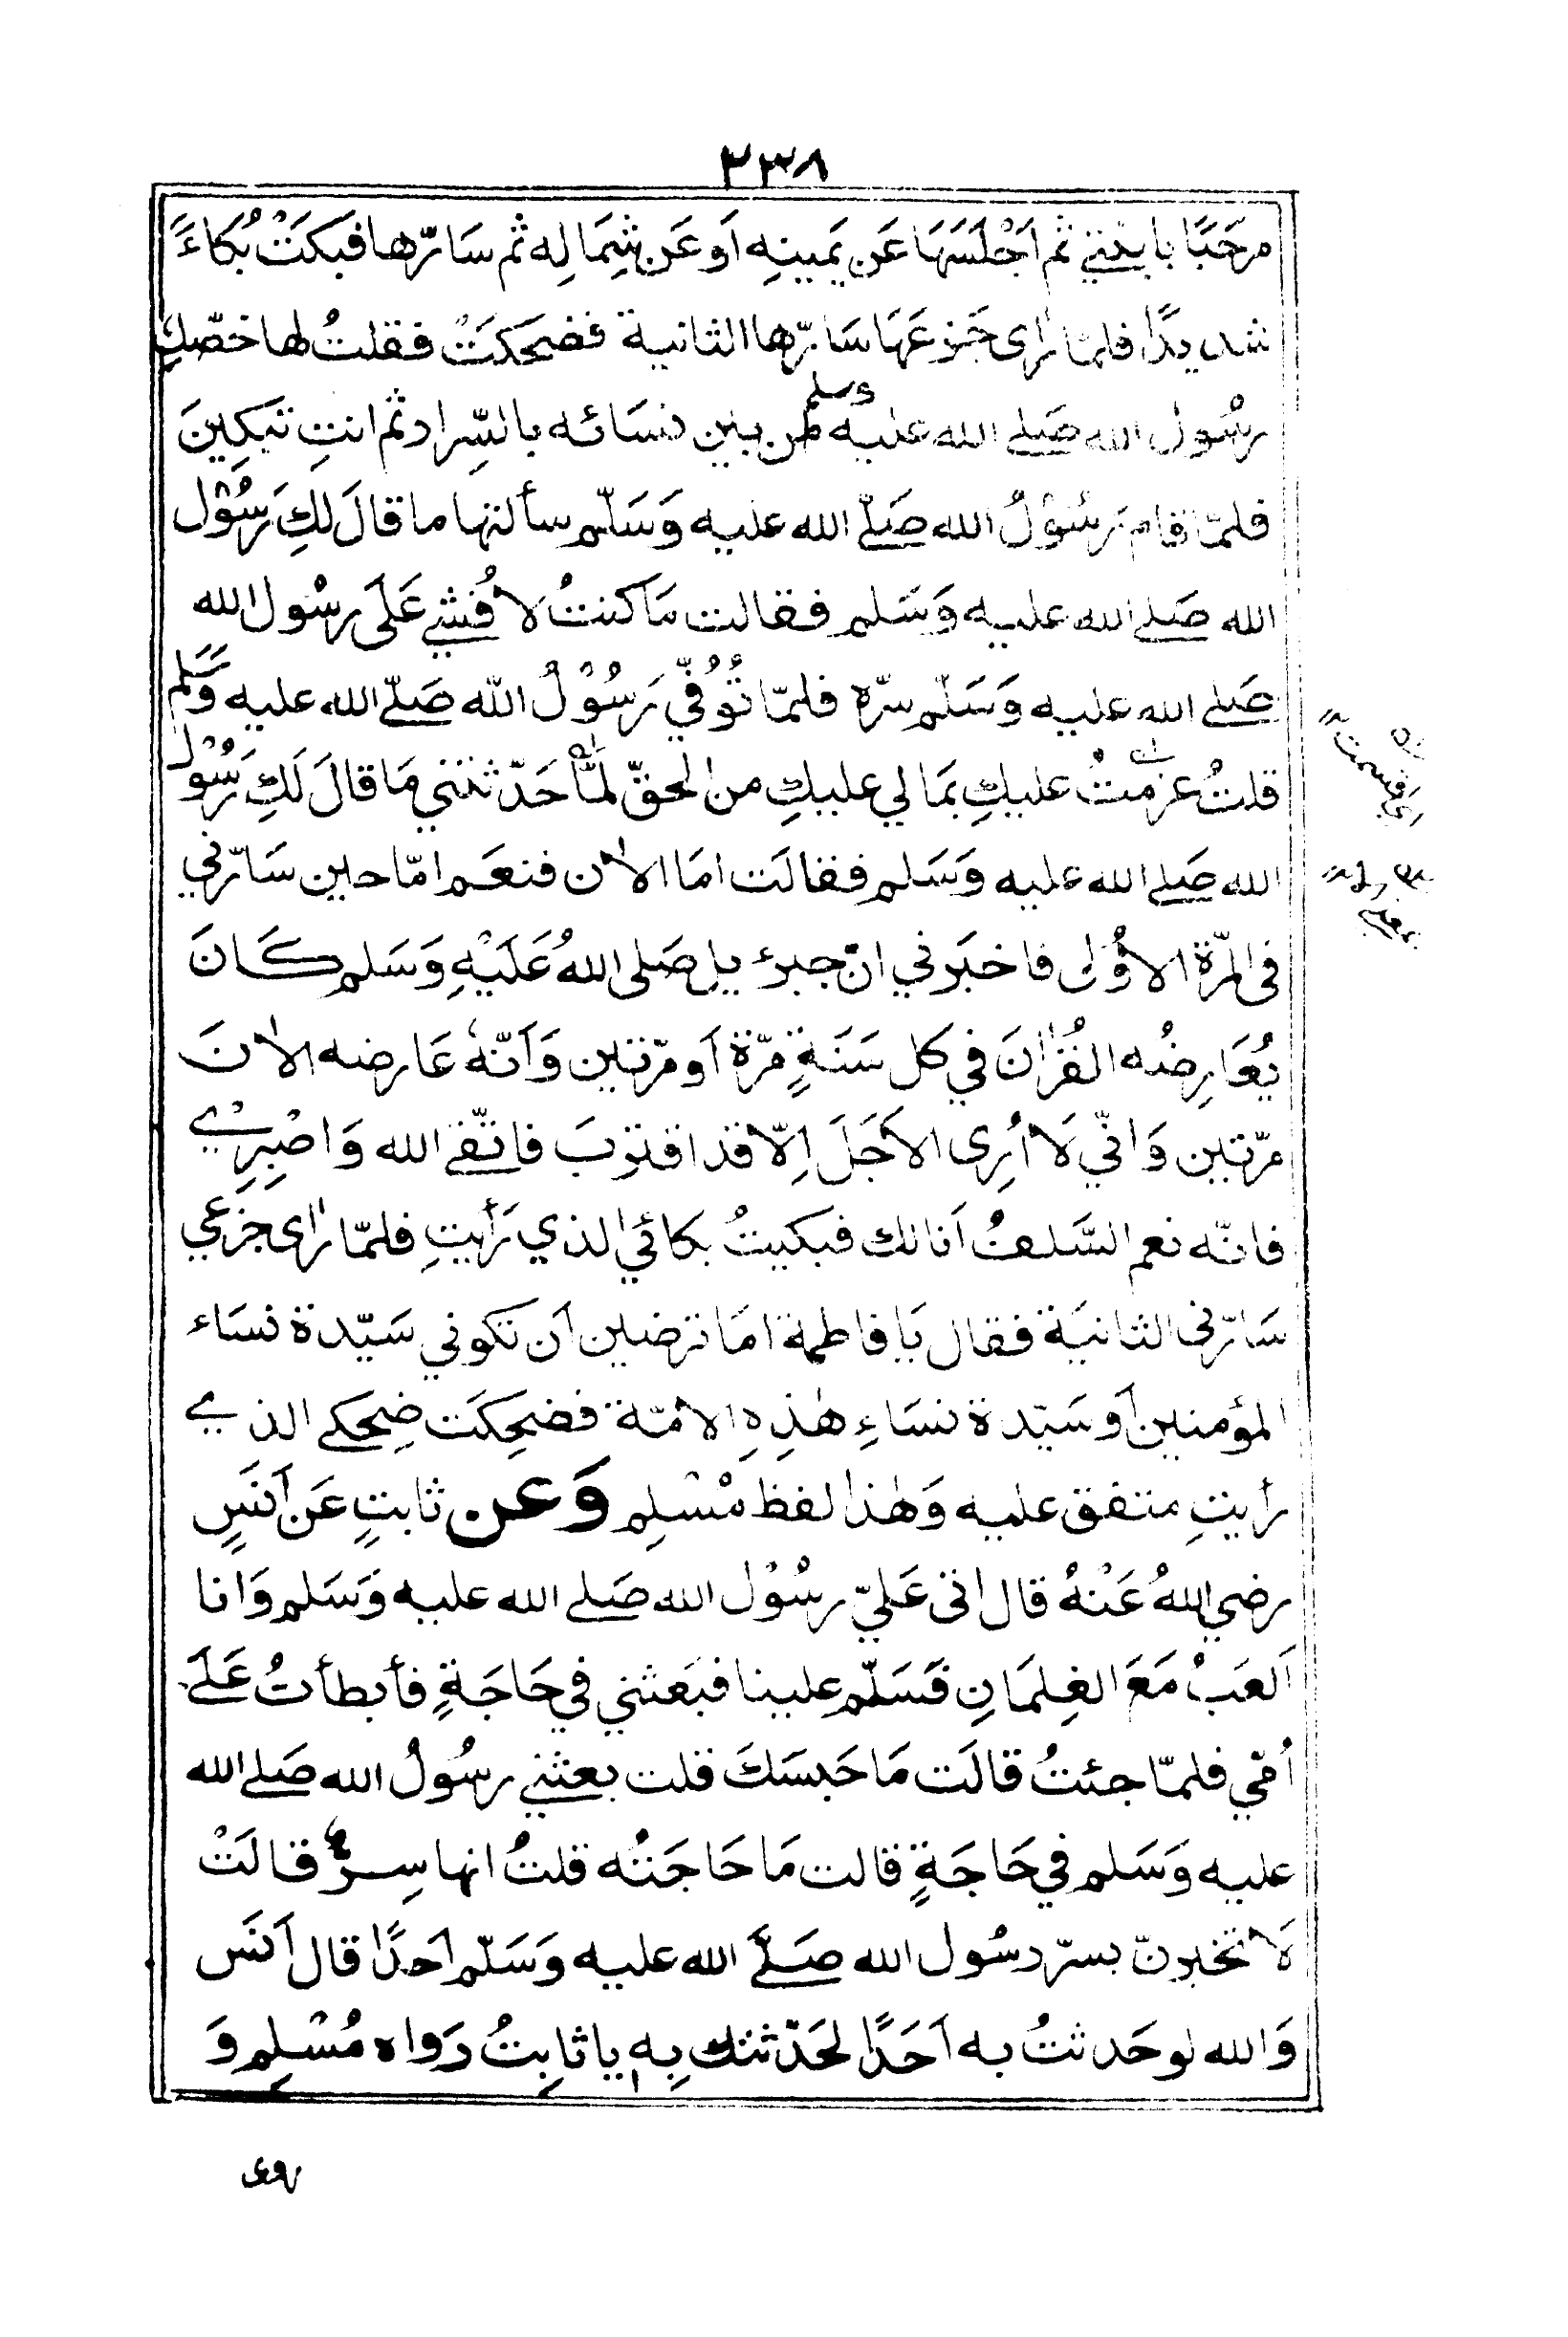 ٢٣٨
مرحَبًا بابنتي ثم اَجْلَسَهَا عَن يَمينِهِ اَو عَن شِمَالِه ثم سَارّها فَبَكَتْ بُكاءً
شديدًا فلمّا رٰاى جَزعَهَا سَارّها الثانية فضحَكتْ فقلتُ لها خصّكِ
رسُول الله صَلى الله عليه وسلم من بين نسَائه بالسِّرار ثم انتِ تبكِينَ
فلمّا قام رَسُوْلُ الله صَلّى الله عليه وَسَلّم سألتها ما قالَ لكِ رَسُوْل
الله صَلى الله عليه وَسَلم فقالت مَا كنتُ لاُفشي عَلَى رسُول الله
صَلى الله عليه وَسَلّم سرّه فلمّا تُوُفّي رَسُوْلُ اللّه صَلّى الله عليه وَسَلم
قلتُ عزمتُ عليكِ بمَا لي عليكِ من الحقّ لمّا حَدّثتني مَا قالَ لَكِ رَسُوْل
الله صَلى الله عليه وَسَلم فقالَت امَا الاٰن فنعَم امّا حين سَارّني
في المرّة الاُوْلى فاخبَرني انّ جبرءيل صَلى اللهُ عَلَيْهِ وَسَلم كَانَ
يُعَارِضُه القُرْاٰنَ في كل سَنَةٍ مرّة اَو مرّتين وَاَنّهٗ عَارضه الاٰنَ
مرّتين وَانّي لَا اُرِى الاَجَلَ اِلّا قد اقترَبَ فاتّقي الله وَاصْبِرِيْ
فانّه نعم السَّلفُ اَنا لك فبكيتُ بكائي الذي رَأيتِ فلمّا رٰاى جزعي
سَارّني الثانيَة فقال يَا فاطمة امَا ترضين اَن تكوني سَيّدة نسَاء
المؤمنين اَو سَيّدة نسَاءِ هٰذِهِ الامّة فضحِكتَ ضِحكي الذي
رأيتِ متفق عليه وَهٰذا لفظ مُسْلِم وَعن ثابتٍ عَن اَنَسٍ
رضي اللهُ عَنْهُ قال اتى عَليّ رسُوْل الله صَلى الله عليه وَسَلم وَانا
اَلعَبُ مَعَ الغِلمَانِ فَسَلّم علينا فبَعَثني في حَاجَةٍ فأبطأتُ عَلَى
اُمّي فلمّا جئتُ قالَت مَا حَبسَكَ قلت بعثني رسُولُ الله صَلى الله
عليه وَسَلم في حَاجَةٍ قالت مَا حَاجَتُه قلتُ انها سِرٌّ قالَتْ
لَا تخبرنّ بسرّ رسُول الله صَلَّى الله عليه وَسَلّم اَحدًا قال اَنَس
وَالله لو حَدثتُ به اَحَدًا لحَدّثتك بِهٖ يا ثابِتُ رَواه مُسْلِم وَ
اى قسمت ١٢
بمعنى الا ١٢
روى